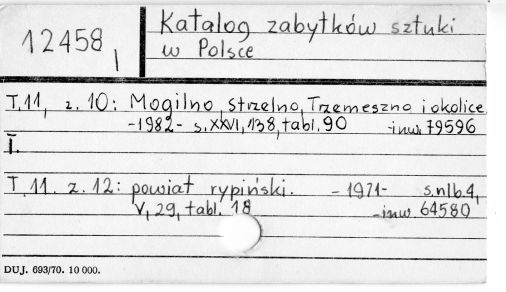 12458
I
Katalog zabytków sztuki
w Polsce
T.11, z. 10: Mogilno, Strzelno, Trzemeszno i okolice
-1982- s. XXVI, 138, tabl. 90 -inw. 79596
I.
T. 11. z. 12: powiat rypiński. -1971- s.nlb.4,
V, 29, tabl. 18 -inw. 64580
DUJ. 693/70. 10 000.